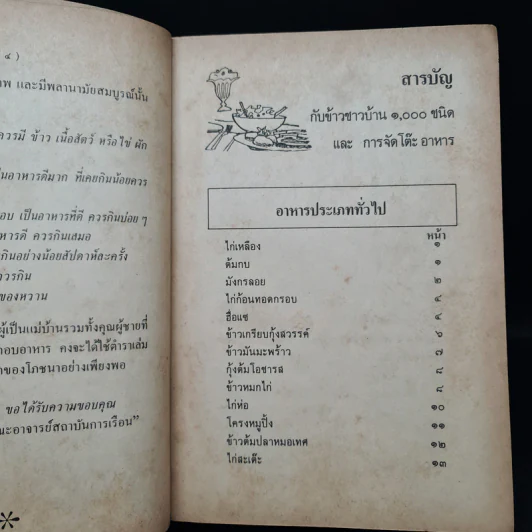 ๔ )
และมีพลานามัยสมบูรณ์นั้น
ควรมี ข้าว เนื้อสัตว์ หรือไข่ ผัก
นอาหารดีมาก ที่เคยกินน้อยควร
อบ เป็นอาหารที่ดี ควรกินบ่อย ๆ
หารดี ควรกินเสมอ
กินอย่างน้อยสัปดาห์ละครั้ง
ควรกิน
ของหวาน
ผู้เป็นแม่บ้านรวมทั้งคุณผู้ชายที่
กอบอาหาร คงจะได้ใช้ตำราเล่ม
าของโภชนาอย่างเพียงพอ
ขอได้รับความขอบคุณ
ณะอาจารย์สถาบันการเรือน”
สารบัญ
กับข้าวชาวบ้าน ๑,๐๐๐ ชนิด
และ การจัดโต๊ะ อาหาร
อาหารประเภททั่วไป
หน้า
ไก่เหลือง ๑
ต้มกบ ๑
มังกรลอย ๒
ไก่ก้อนทอดกรอบ ๔
ฮื่อแซ ๔
ข้าวเกรียบกุ้งสวรรค์ ๖
ข้าวมันมะพร้าว ๗
กุ้งต้มโอชารส ๘
ข้าวหมกไก่ ๘
ไก่ห่อ ๑๐
โครงหมูปิ้ง ๑๑
ข้าวต้มปลาหมอเทศ ๑๒
ไก่สะเต๊ะ ๑๓